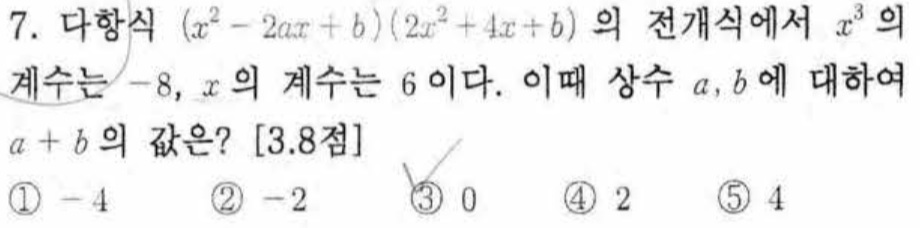 7. 다항식 (x² - 2ax + b)(2x² + 4x + b) 의 전개식에서 x³ 의
계수는 -8, x 의 계수는 6 이다. 이때 상수 a, b 에 대하여
a + b 의 값은? [3.8점]
① -4 ② -2 ③ 0 ④ 2 ⑤ 4